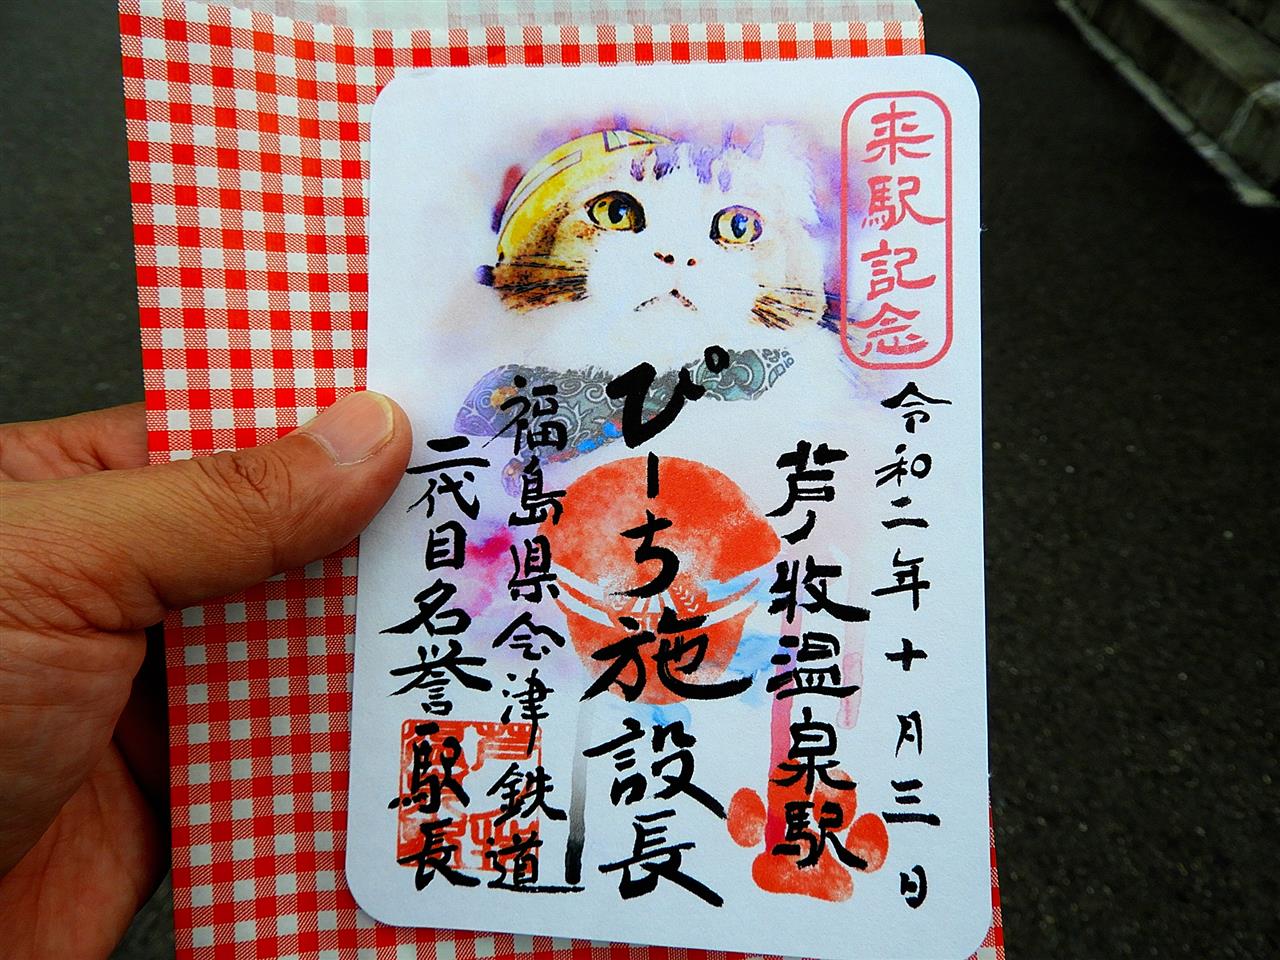 来駅記念
令和二年十月三日
芦ノ牧温泉駅
ぴーち施設長
福島県会津鉄道
二代目名誉駅長